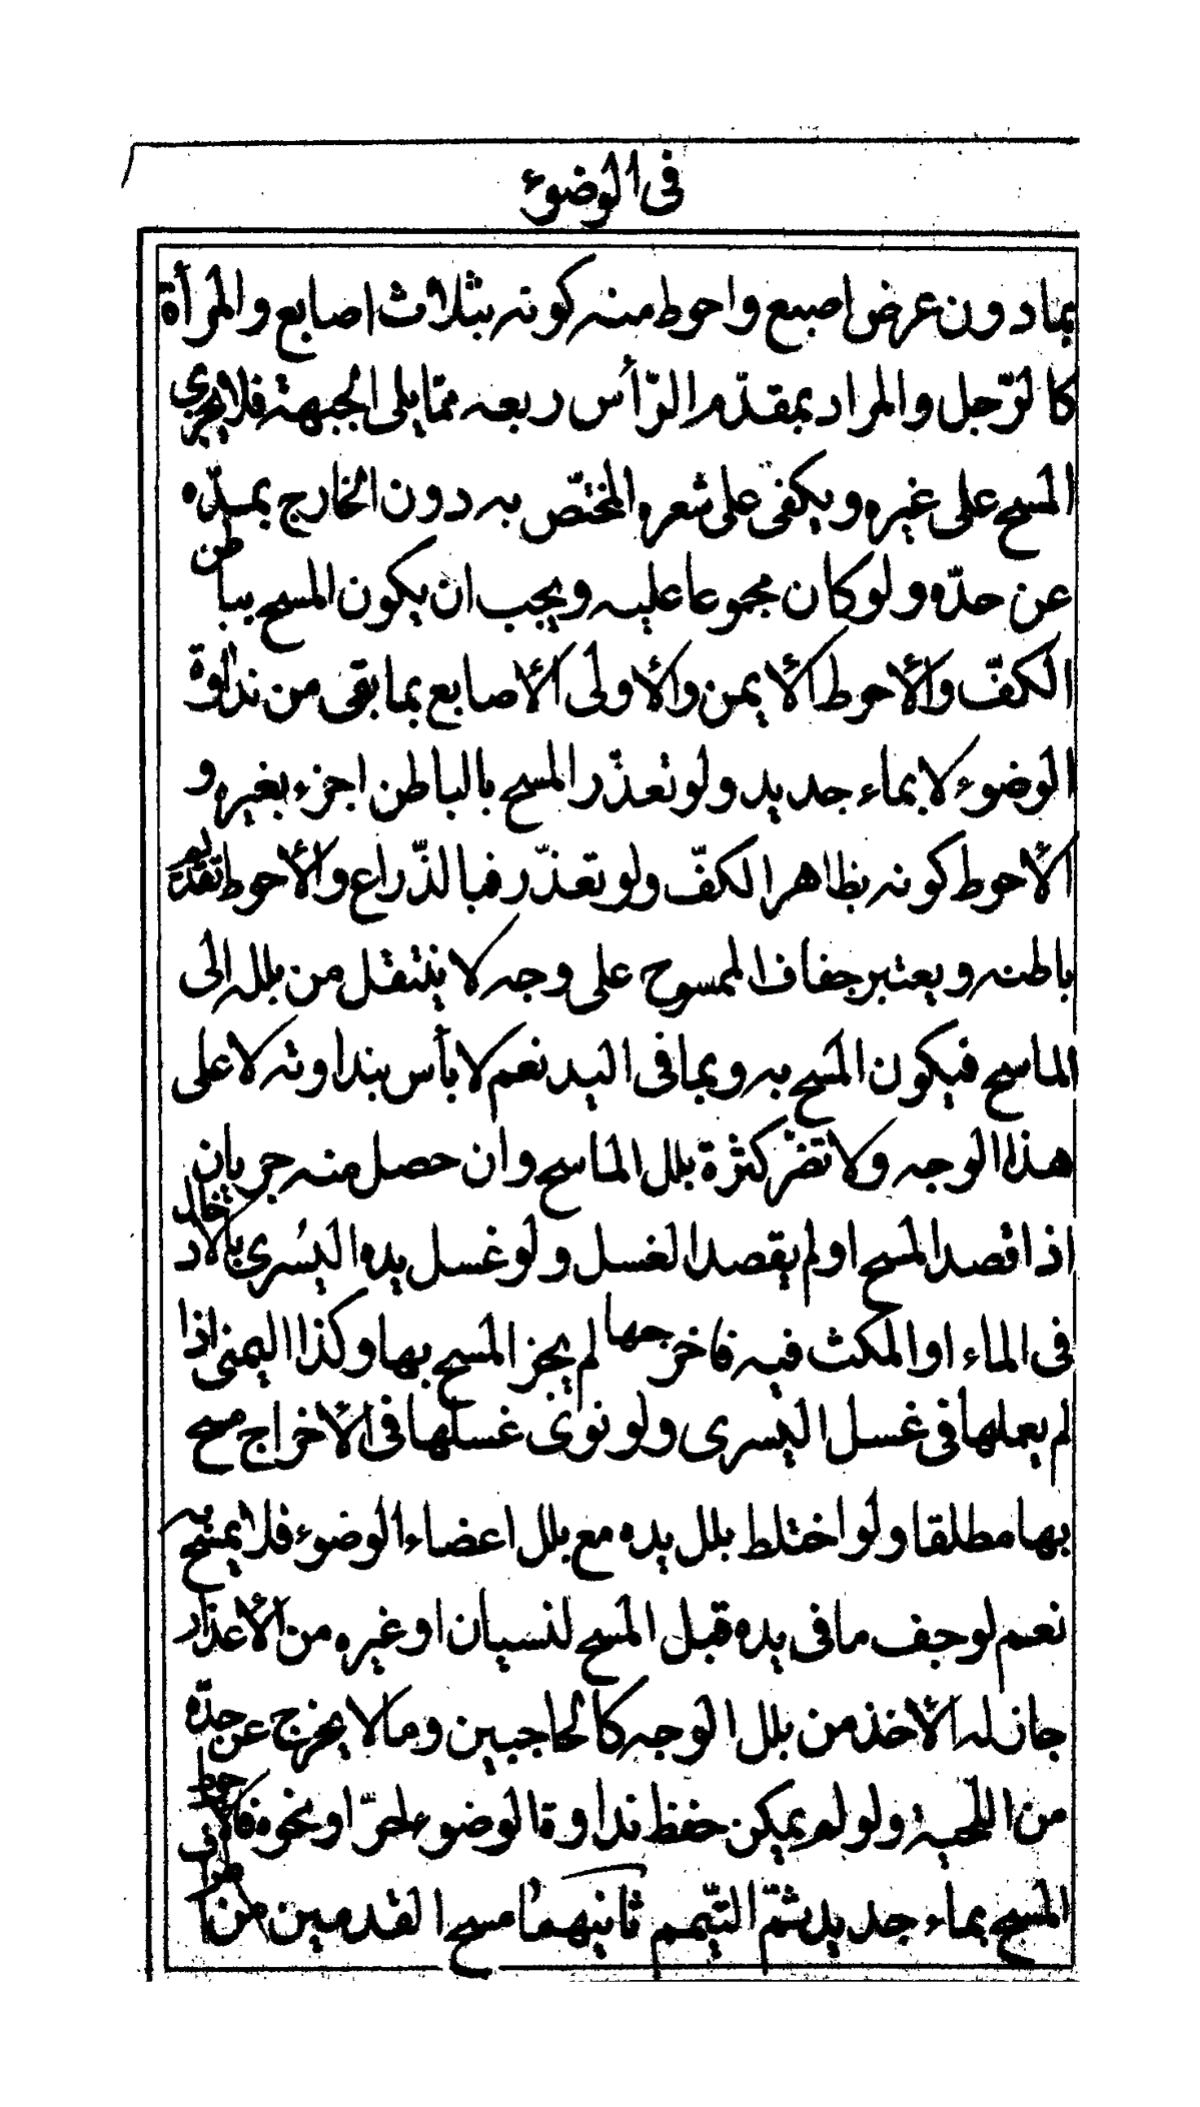 فى الوضوء
بما دون عرض اصبع واحوط منه كونه بثلاث اصابع والمرأة
كالرّجل والمراد بمقدّم الرّأس ربعه ممّا يلى الجبهة فلا يجزي
المسح على غيره ويكفى على شعره المختصّ به دون الخارج بمدّه
عن حدّه ولو كان مجموعا عليه ويجب ان يكون المسح بباطن
الكفّ والأحوط الأيمن والأولى الأصابع بما بقى من نداوة
الوضوء لا بماء جديد ولو تعذّر المسح بالباطن اجزء بغيره و
الأحوط كونه بظاهر الكفّ ولو تعذّر فبالذّراع والأحوط تقديم
باطنه ويعتبر جفاف الممسوح على وجه لا ينتقل من بلله الى
الماسح فيكون المسح به وبما فى اليد نعم لا بأس بنداوته لا على
هذا الوجه ولا تضرّ كثرة بلل الماسح وان حصل منه جريان
اذا قصد المسح او لم يقصد الغسل ولو غسل يده اليسرى بالادخال
فى الماء او المكث فيه فاخرجها لم يجز المسح بها وكذا اليمنى اذا
لم يعملها فى غسل اليسرى ولو نوى غسلها فى الأخراج مسح
بها مطلقا ولو اختلط بلل يده مع بلل اعضاء الوضوء فلا يمسح به
نعم لو جف ما فى يده قبل المسح لنسيان او غيره من الأعذار
جاز له الأخذ من بلل الوجه كالحاجبين وما لا يخرج عن حدّه
من اللّحية ولو لم يمكن حفظ نداوة الوضوء لحرّ او نحوه فالأحوط
المسح بماء جديد ثمّ التيّمم ثانيهما مسح القدمين من